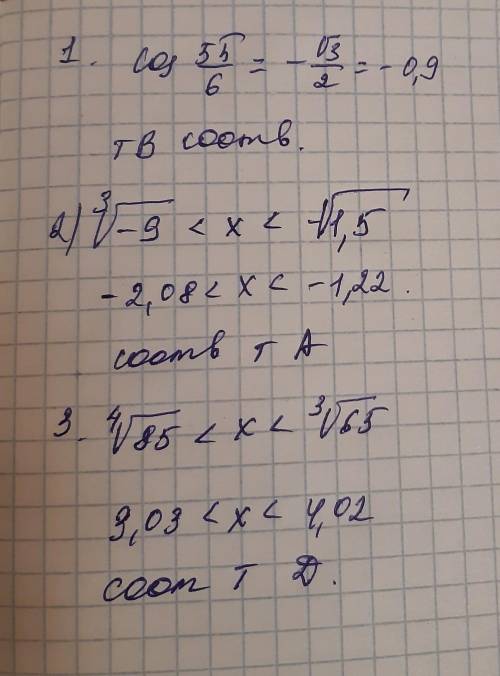 1. cos 5π/6 = - √3/2 = - 0,9
т В соотв.
2) ∛-9 < x < -√1,5
-2,08 < x < -1,22.
соотв т А
3. ∜85 < x < ∛65
3,03 < x < 4,02
соот т D.